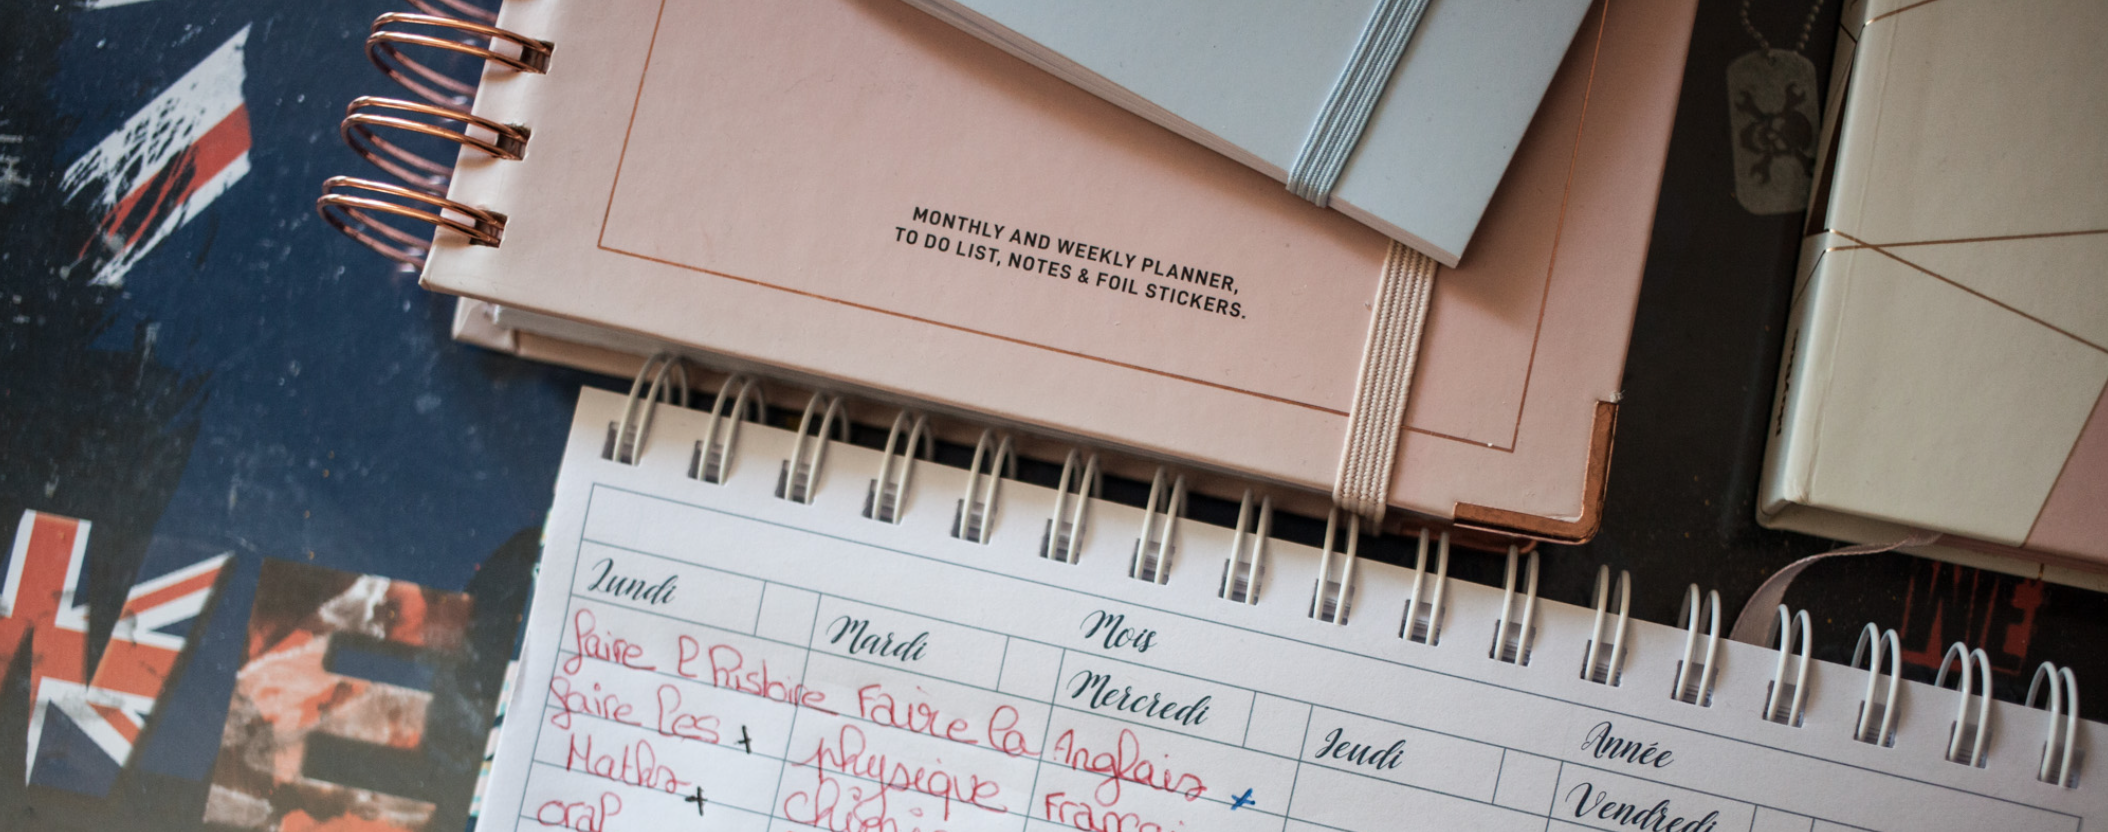 MONTHLY AND WEEKLY PLANNER,
TO DO LIST, NOTES & FOIL STICKERS.
Mois
Année
Lundi
Mardi
Mercredi
Jeudi
Vendredi
faire l'histoire
faire les +
Maths +
oral
Faire la
physique
Anglais +
WE